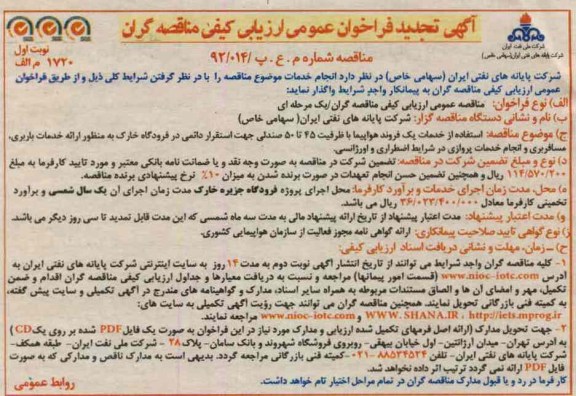 آگهی تجدید فراخوان عمومی ارزیابی کیفی مناقصه گران
شرکت ملی نفت ایران
شرکت پایانه های نفتی ایران (سهامی خاص)
مناقصه شماره م . ع . پ /۹۲/۰۱۴
نوبت اول
۱۷۲۰ م الف
شرکت پایانه های نفتی ایران (سهامی خاص) در نظر دارد انجام خدمات موضوع مناقصه را با در نظر گرفتن شرایط کلی ذیل و از طریق فراخوان
عمومی ارزیابی کیفی مناقصه گران به پیمانکار واجد شرایط واگذار نماید:
الف) نوع فراخوان: مناقصه عمومی ارزیابی کیفی مناقصه گران/یک مرحله ای
ب) نام و نشانی دستگاه مناقصه گزار: شرکت پایانه های نفتی ایران( سهامی خاص)
ج) موضوع مناقصه: استفاده از خدمات یک فروند هواپیما با ظرفیت ۴۵ تا ۵۰ صندلی جهت استقرار دائمی در فرودگاه خارک به منظور ارائه خدمات باربری،
مسافربری و انجام خدمات پروازی در شرایط اضطراری و اورژانسی.
د) نوع و مبلغ تضمین شرکت در مناقصه: تضمین شرکت در مناقصه به صورت وجه نقد و یا ضمانت نامه بانکی معتبر و مورد تایید کارفرما به مبلغ
۱۱۴/۵۷۰/۲۰۰ ریال و همچنین تضمین حسن انجام تعهدات در صورت برنده شدن به میزان ۱۰٪ نرخ پیشنهادی برنده مناقصه.
ه) محل، مدت زمان اجرای خدمات و برآورد کارفرما: محل اجرای پروژه فرودگاه جزیره خارک مدت زمان اجرای آن یک سال شمسی و برآورد
تخمینی کارفرما معادل ۳۶/۰۲۳/۴۰۰/۰۰۰ ریال می باشد.
و) مدت اعتبار پیشنهاد: مدت اعتبار پیشنهاد از تاریخ ارائه پیشنهاد مالی به مدت سه ماه شمسی که این مدت قابل تمدید تا سی روز دیگر می باشد.
ز) نوع گواهی تایید صلاحیت پیمانکاری: ارائه گواهی نامه مجوز فعالیت از سازمان هواپیمایی کشوری.
ح) - زمان، مهلت و نشانی دریافت اسناد ارزیابی کیفی:
۱- کلیه مناقصه گران واجد شرایط می توانند از تاریخ انتشار آگهی نوبت دوم به مدت ۱۴ روز به سایت اینترنتی شرکت پایانه های نفتی ایران به
آدرس www.nioc-iotc.com (قسمت امور پیمانها) مراجعه و نسبت به دریافت معیارها و جداول ارزیابی کیفی مناقصه گران اقدام و ضمن
تکمیل، مهر و امضای آن ها و الصاق مستندات مربوطه به همراه سایر اسناد، مدارک و گواهینامه های مندرج در آگهی تکمیلی و سایت پیش گفته،
به کمیته فنی بازرگانی تحویل نمایند. همچنین مناقصه گران می توانند جهت رؤیت آگهی تکمیلی به سایت های:
WWW.SHANA.IR , http://iets.mprog.ir و www.nioc-iotc.com مراجعه نمایند.
۲- جهت تحویل مدارک (ارائه اصل فرمهای تکمیل شده ارزیابی و مدارک مورد نیاز در این فراخوان به صورت یک فایل PDF شده بر روی یک CD )
به آدرس تهران- میدان آرژانتین- اول خیابان بیهقی- روبروی فروشگاه شهروند و بانک سامان- پلاک ۲۸ - شرکت ملی نفت ایران- طبقه همکف-
شرکت پایانه های نفتی ایران- تلفن ۸۸۵۳۴۵۲۴-۰۲۱ -کمیته فنی بازرگانی مراجعه گردد. بدیهی است به مدارک ناقص و مدارکی که به صورت
فایل PDF ارائه نمی گردد ترتیب اثر داده نخواهد شد.
کارفرما در رد و یا قبول مدارک مناقصه گران در تمام مراحل اختیار تام خواهد داشت.
روابط عمومی